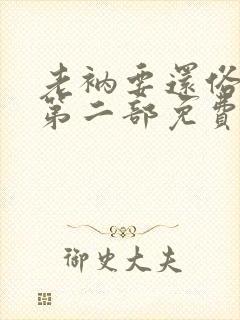 老衲要還俗
第二部免費
御史大夫